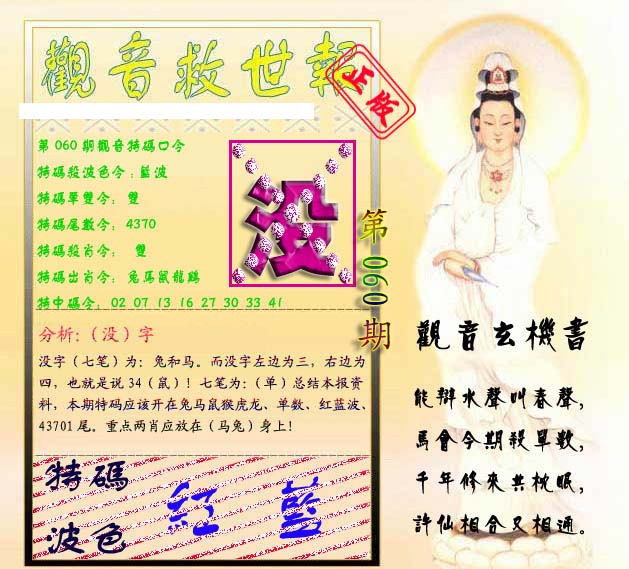 觀音救世報
正版
第060期觀音特碼口令
特碼殺波色令:藍波
特碼單雙令: 雙
特碼尾數令: 4370
特碼殺肖令: 雙
特碼出肖令: 兔馬鼠龍鷄
特中碼令: 02 07 13 16 27 30 33 41
没
第060期
分析:（没）字
没字（七笔）为：兔和马。而没字左边为三，右边为
四，也就是说 34（鼠）！七笔为：（单）总结本报资
料，本期特码应该开在兔马鼠猴虎龙、单数、红蓝波、
43701 尾。重点两肖应放在（马兔）身上！
特碼
波色
紅 藍
觀音玄機書
能辯水聲叫春聲，
馬會今期殺單數，
千年修來共枕眠，
許仙相合又相通。